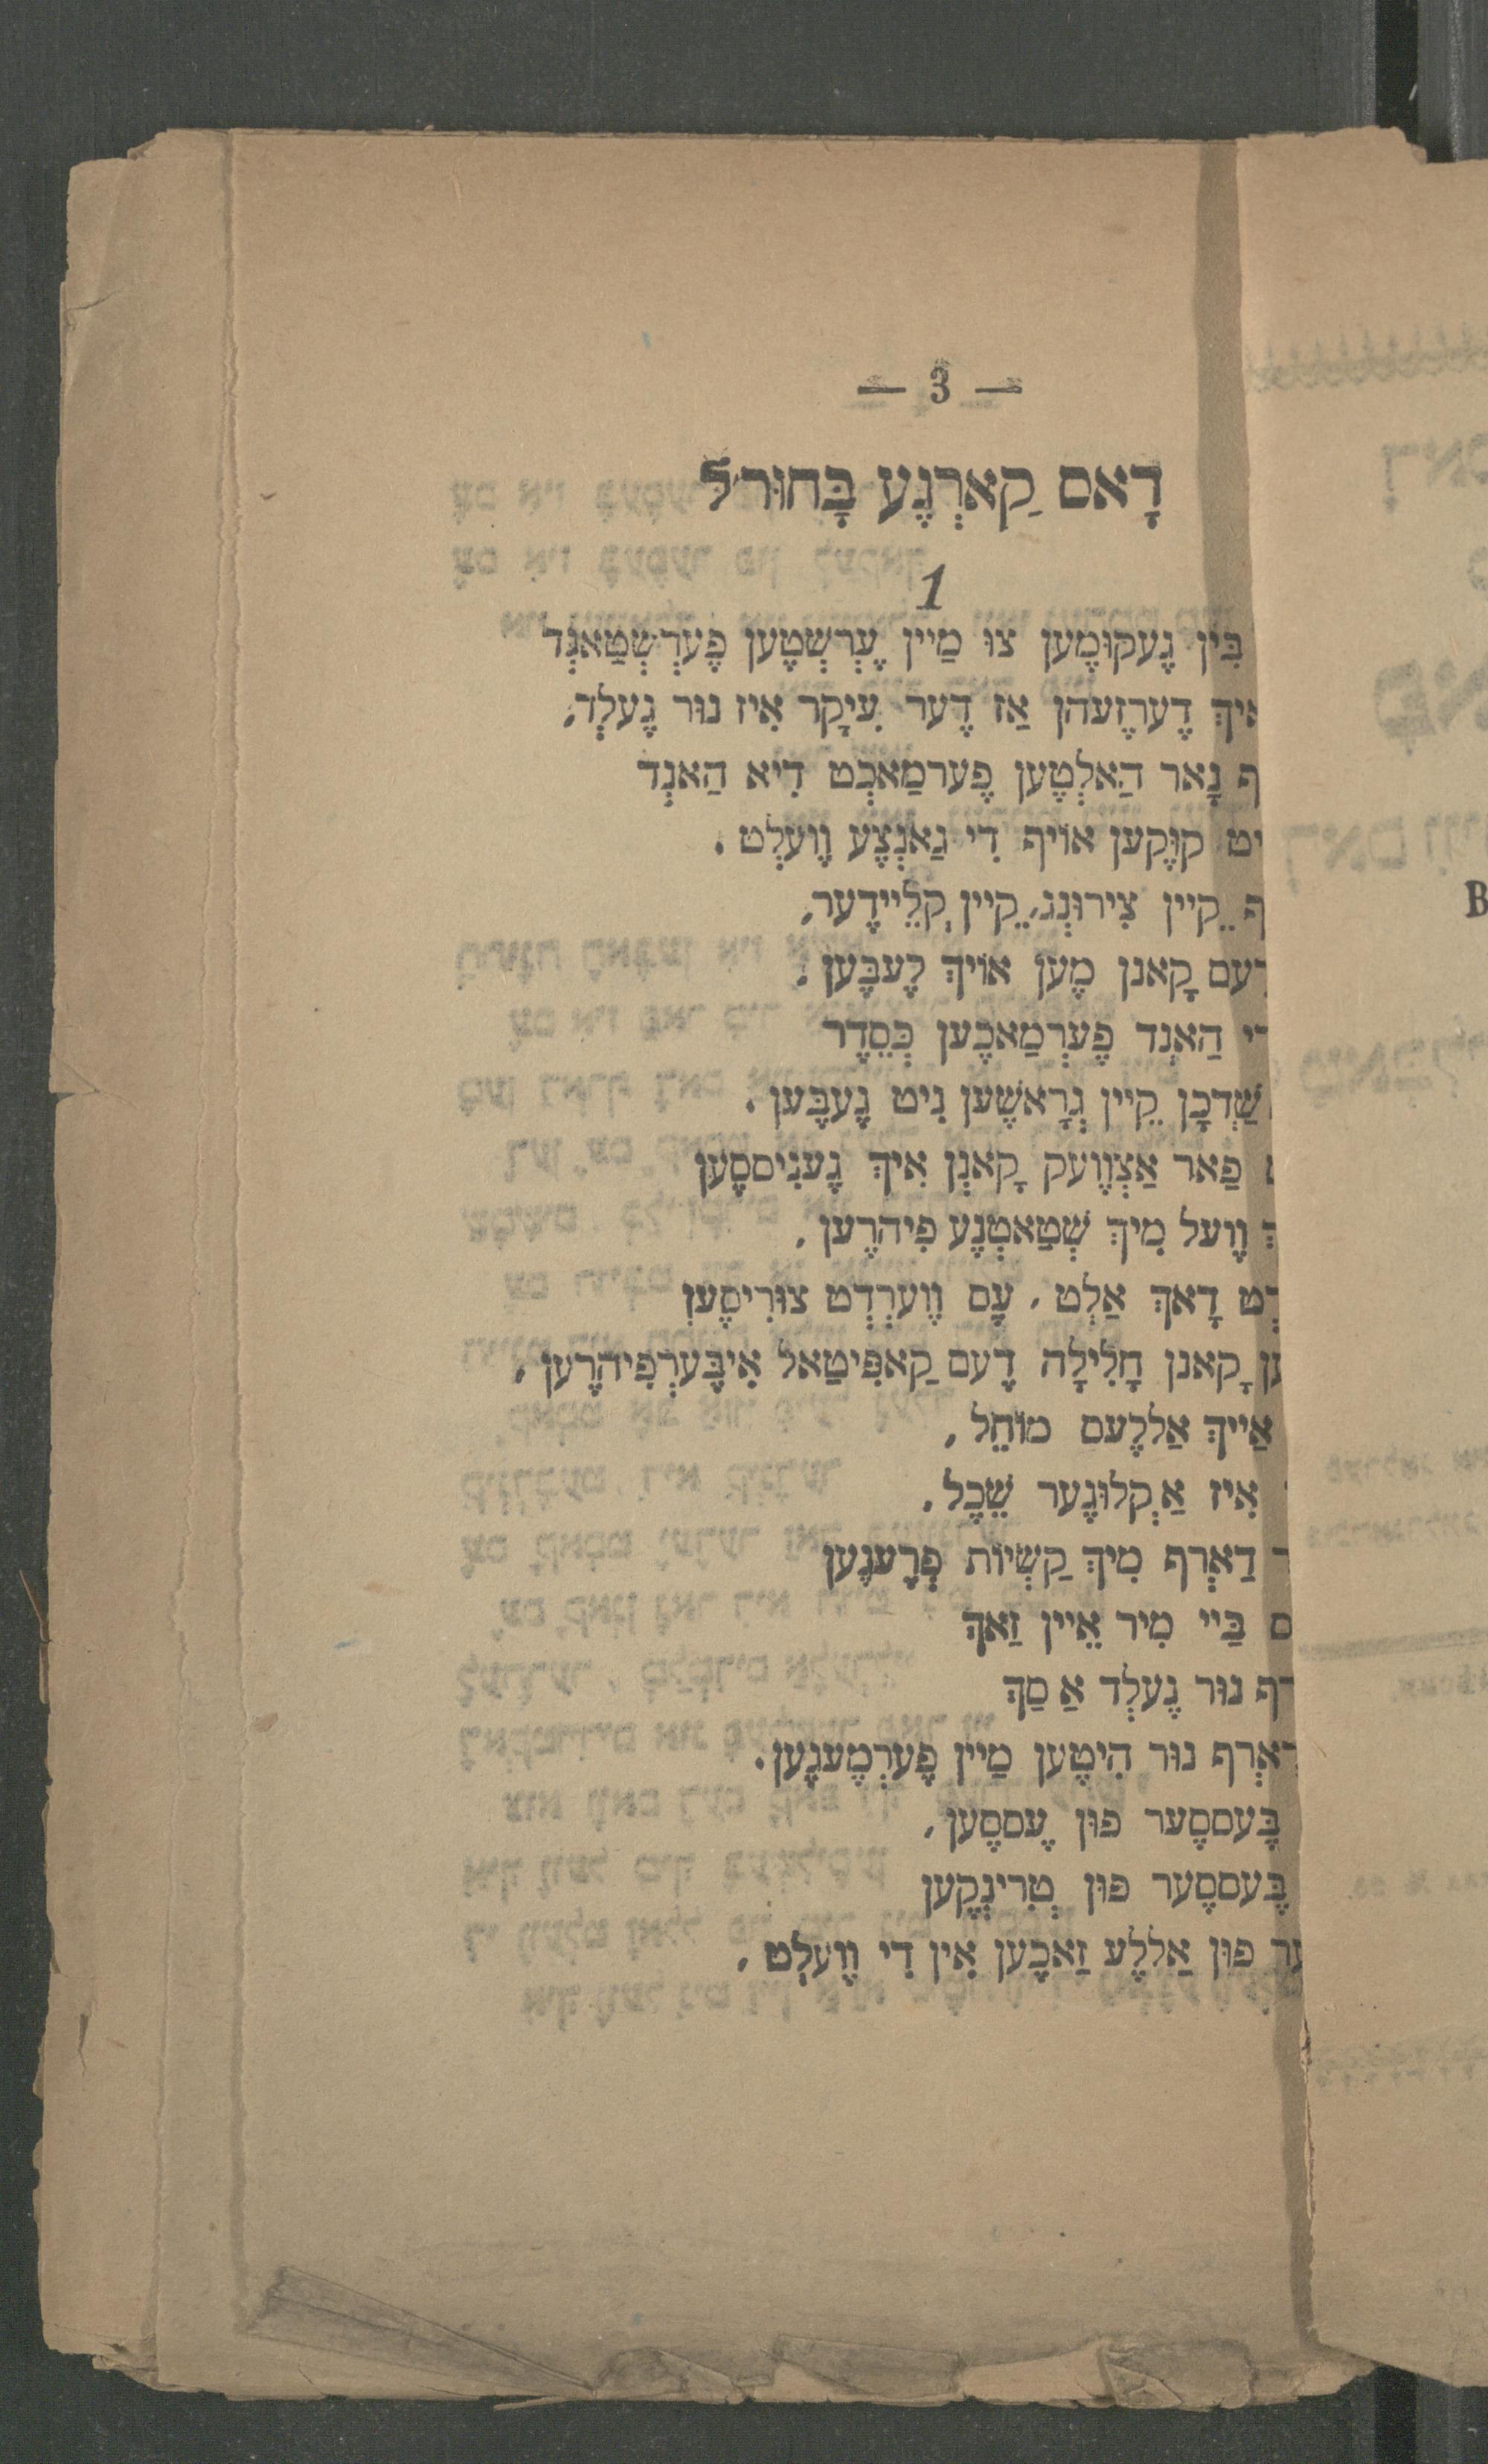 — 3 —
דָאס קַארְגֶע בָּחוּר'ל
1
בִּין גֶעקוּמֶען צוּ מַיין עֶרְשְׁטֶען פֶערְשְׁטַאנְד
אִיךְ דֶערְזֶעהן אַז דֶער עִיקָר אִיז נוּר גֶעלְד,
נָאר הַאלְטֶען פֶערמַאכְט דִיא הַאנְד
קוּקֶען אוֹיף דִי גַאנְצֶע וֶועלְט .
קֵיין צִירוּנְג, קֵיין קְלֵיידֶער,
דֶעם קָאנן מֶען אוֹיךְ לֶעבֶּען .
הַאנְד פֶערְמַאכֶען כְּסֵדֶר
שַׁדְכָן קֵיין גְרָאשֶׁען נִיט גֶעבֶּען .
פַאר אַצְוֶועק קָאנְן אִיךְ גֶענִיססֶען
וֶועל מִיךְ שְׁטַאטְנֶע פִיהרֶען,
דָאךְ אַלְט, עֶס וֶוערְדְט צוּרִיסֶען
קָאנן חָלִילָה דֶעם קַאפִּיטַאל אִיבֶּערְפִיהרֶען,
אַייךְ אַללֶעם מוֹחֵל,
אִיז אַ קְלוּגֶער שֵׂכֶל .
דַארְף מִיךְ קַשְׁיוֹת פְרֶעגֶען
בַּיי מִיר אֵיין זַאךְ
נוּר גֶעלְד אַ סַךְ
דַארְף נוּר הִיטֶען מַיין פֶערְמֶעגֶען.
בֶּעססֶער פוּן עֶססֶען,
בֶּעססֶער פוּן טְרִינְקֶען
פוּן אַללֶע זַאכֶען אִין דִי וֶועלְט,
B